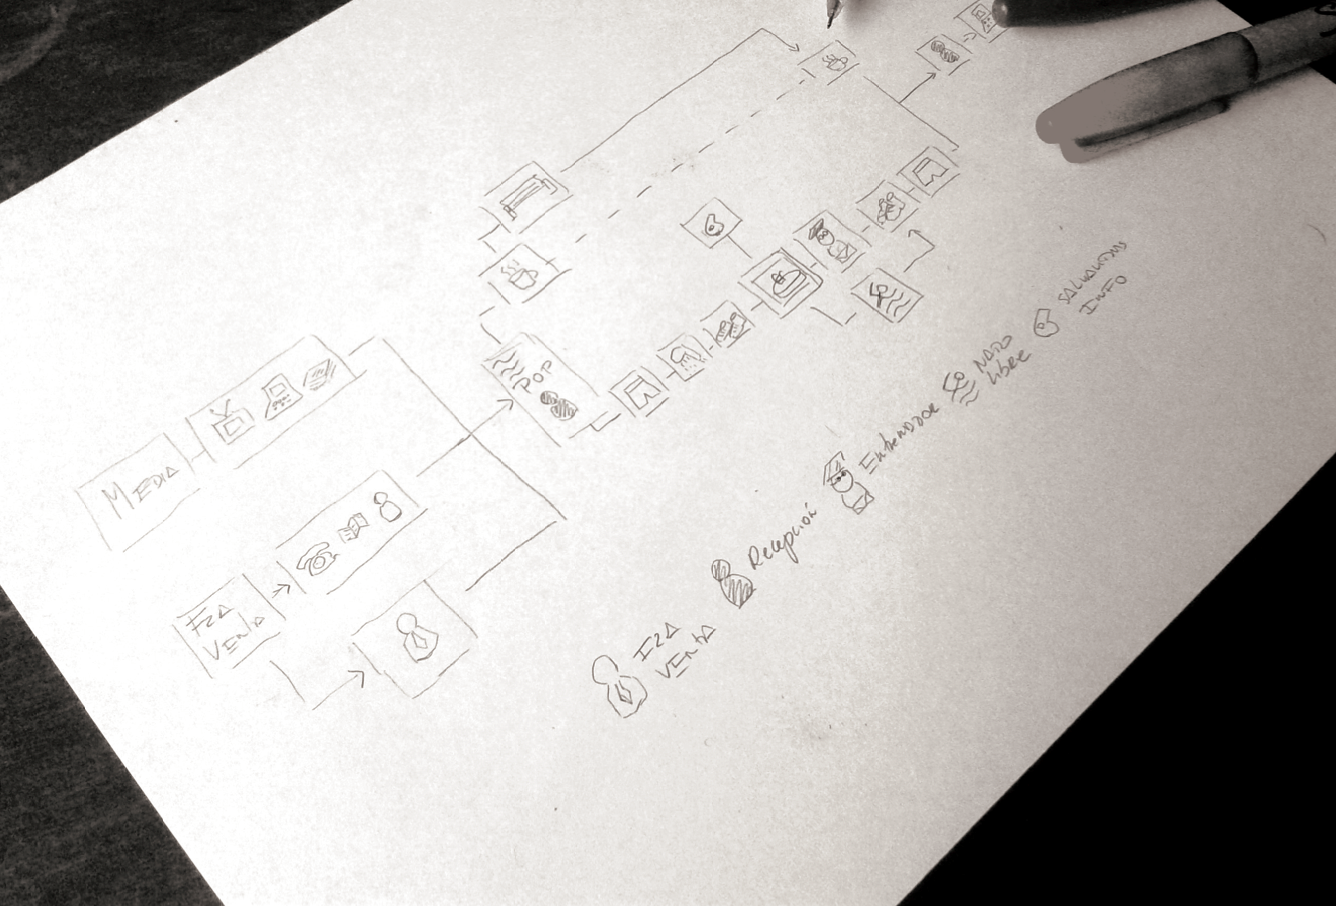 MEDIA
FZA
VENTA
POP
FZA
VENTA
Recepción
Entrenador
NADO
libre
SALVAVIDAS
INFO